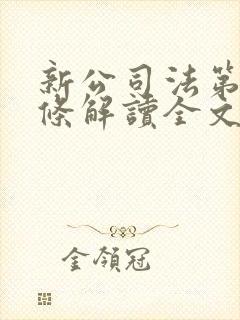 新公司法第
條解讀全文
金領冠